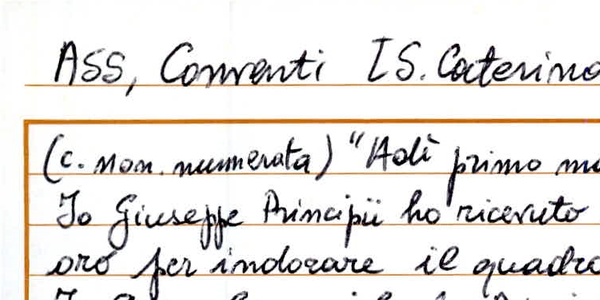 ASS, Conventi I S. Caterina
(c. non. numerata) "Adì primo
Io Giuseppe Principii ho ricevuto
oro per indorare il quadro